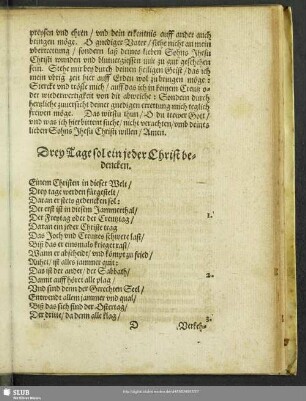 preysen vnd ehren / vnd dein erkentnis auff ander auch
bringen möge. O gnediger Vater / sihe nicht an mein
vbertrettung / sondern laß deines lieben Sohns Jhesu
Christi wunden vnd blutuergiessen mir zu gut geschehen
sein. Stehe mir bey durch deinen heiligen Geist / das ich
mein vbrig zeit hier auff Erden wol zubringen möge :
Sterck vnd tröste mich / auff das ich in keinem Creutz o-
der wiederwertigkeit von dir abweiche : Sondern durch
hertzliche zuuersicht deiner gnedigen errettung mich teglich
frewen möge. Das wirstu thun / O du trewer Gott /
vnd was ich hier bitten siehe / nicht verachten / vmb deines
lieben Sohns Jhesu Christi willen / Amen.
Drey Tage sol ein jeder Christ be-
dencken.
Einem Christen in dieser Welt /
Drey tage werden fürgestelt /
Daran er stets gedencken sol :
Der erst ist in diesem Jammerthal /
Der Freytag oder der Creutztag / 1.
Daran ein jeder Christe trag
Das Joch vnd Creutzes schwere last /
Biß das er einsmals krieget rast /
Wann er abscheidt / vnd kömpt zu fried /
Ruhet / ist alles jammer quit :
Das ist der ander / der Sabbath / 2.
Damit auff höret alle plag /
Vnd sind denn der Gerechten Seel /
Entwendt allem jammer vnd qual /
Biß das sich find der Ostertag /
Der dritte / da denn alle klag / 3.
D Verkeh-
SLUB